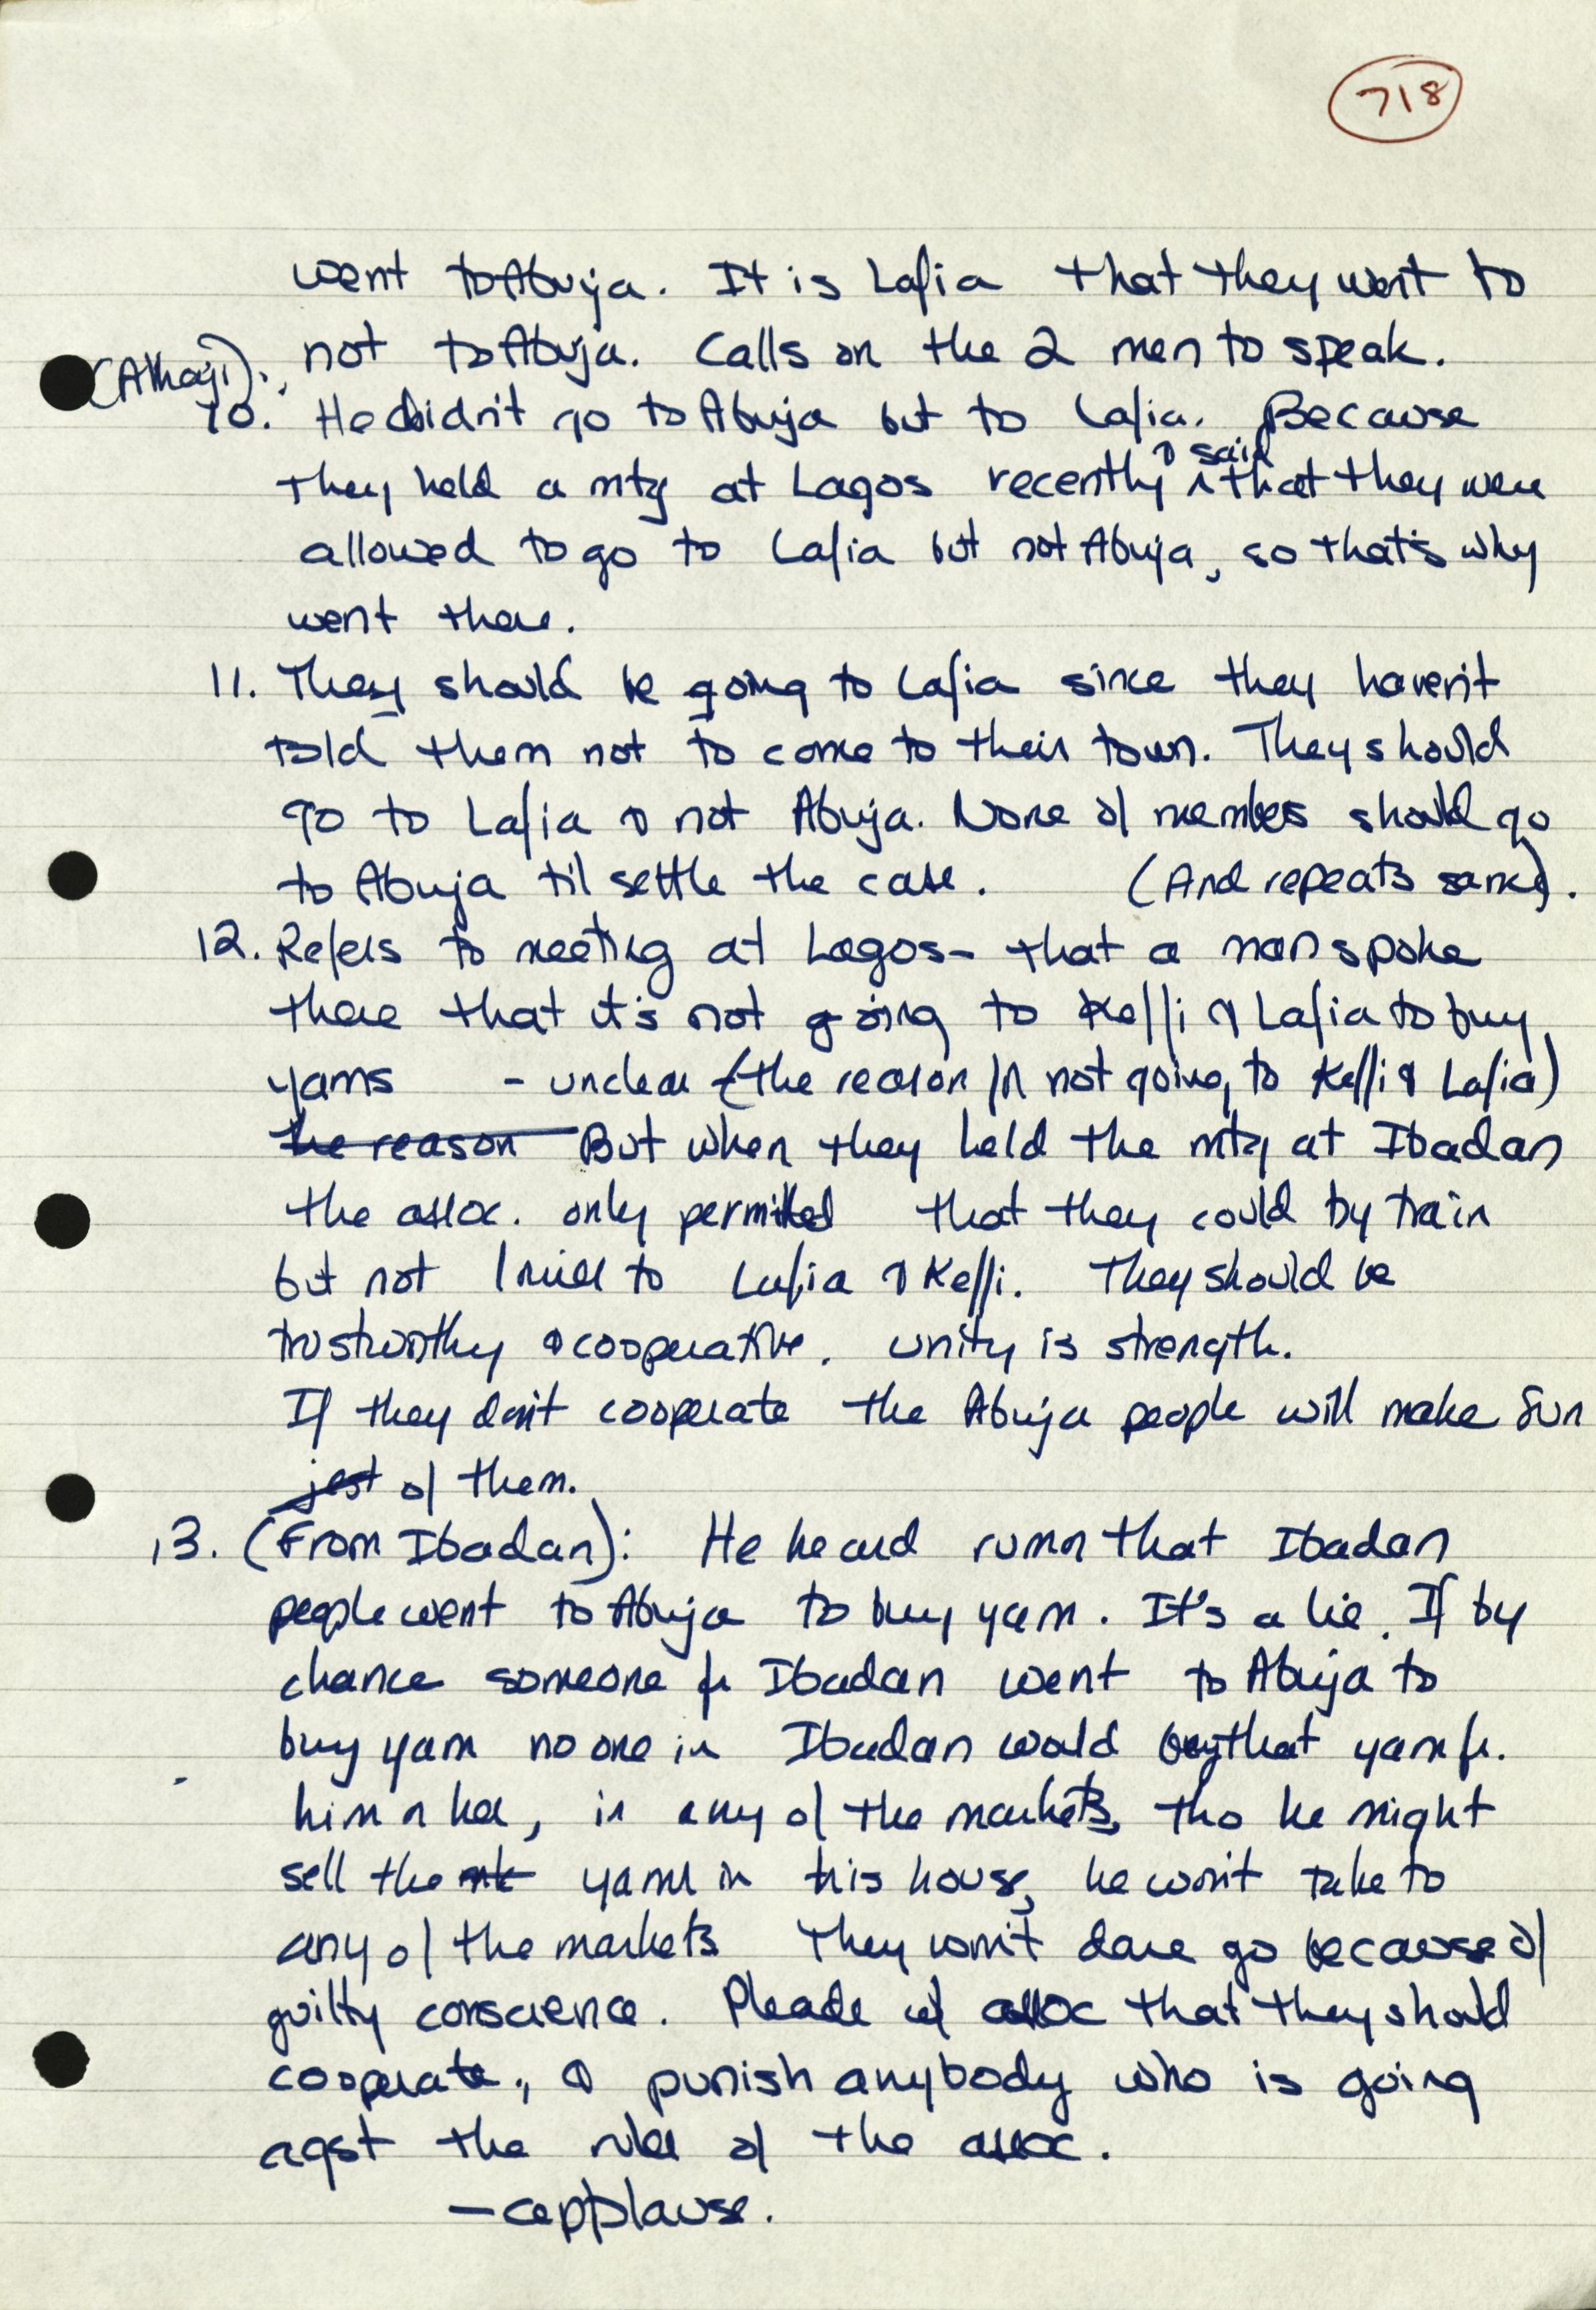 718
went to Abuja. It is Lafia that they went to
not to Abuja. Calls on the 2 men to speak.
(Alhaji).
10. He didn't go to Abuja but to Lafia. Because
they held a mtg at Lagos recently & said that they were
allowed to go to Lafia but not Abuja, so that's why
went there.
11. They should be going to Lafia since they haven't
told them not to come to their town. They should
go to Lafia & not Abuja. None of members should go
to Abuja til settle the case. (And repeats same).
12. Refers to meeting at Lagos - that a man spoke
there that it's not going to Keffi & Lafia to buy
yams - unclear (the reason for not going to Keffi & Lafia)
the reason But when they held the mtg at Ibadan
the assoc. only permitted that they could by train
but not to Lafia & Keffi. They should be
trustworthy & cooperative. unity is strength.
If they don't cooperate the Abuja people will make fun
jest of them.
13. (From Ibadan): He heard rumor that Ibadan
people went to Abuja to buy yam. It's a lie. If by
chance someone fr Ibadan went to Abuja to
buy yam no one in Ibadan would buy that yam fr.
him or her, in any of the markets, tho he might
sell the mk yams in his house, he won't take to
any of the markets They won't dare go because of
guilty conscience. Pleads w/ assoc that they should
cooperate, & punish anybody who is going
agst the rules of the assoc.
- applause.